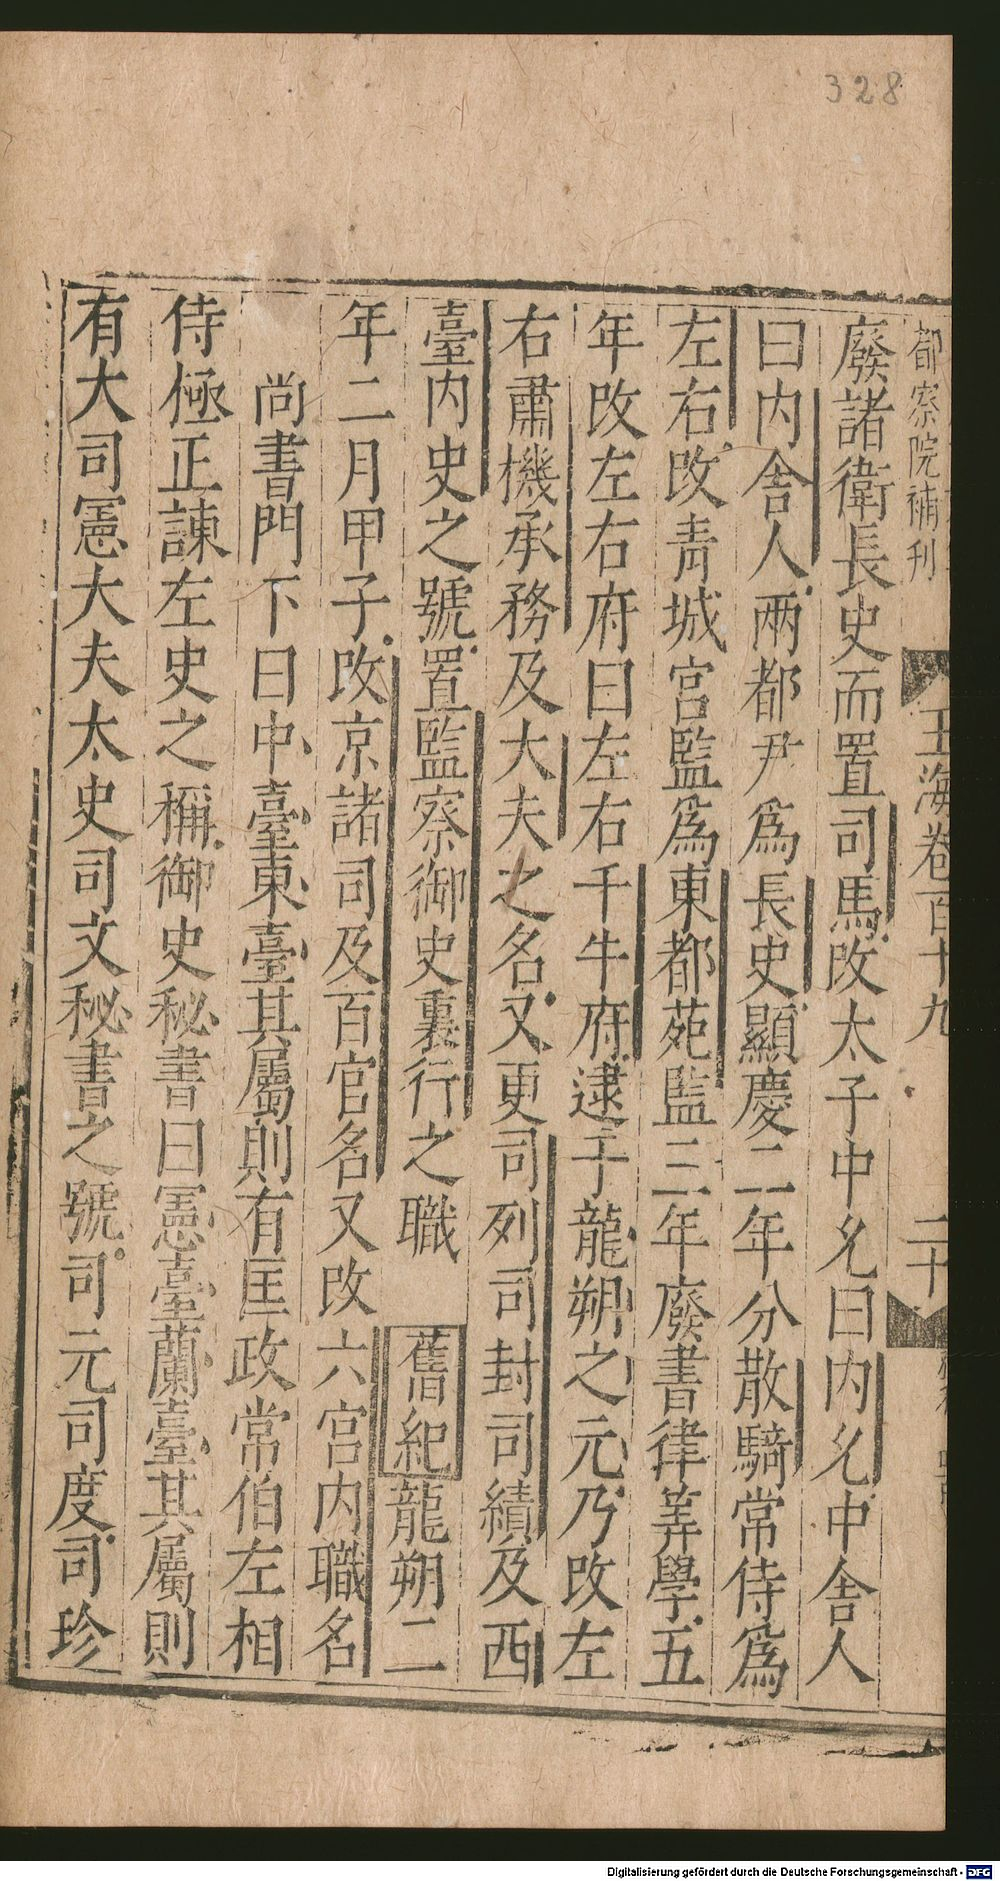 328
都察院補刊 玉海卷百十九 二十
廢諸衛長史而置司馬改太子中允曰内允中舍人
曰内舍人兩都尹爲長史顯慶二年分散騎常侍爲
左右改青城宮監爲東都苑監三年廢書律筭學五
年改左右府曰左右千牛府逮于龍朔之元乃改左
右肅機承務及大夫之名又更司列司封司績及西
臺内史之號置監察御史裏行之職 舊紀龍朔二
年二月甲子改京諸司及百官名又改六宮内職名
尚書門下曰中臺東臺其屬則有匡政常伯左相
侍極正諫左史之稱御史秘書曰憲臺蘭臺其屬則
有大司憲大夫太史司文秘書之號司元司度司珍
Digitalisierung gefördert durch die Deutsche Forschungsgemeinschaft - DFG